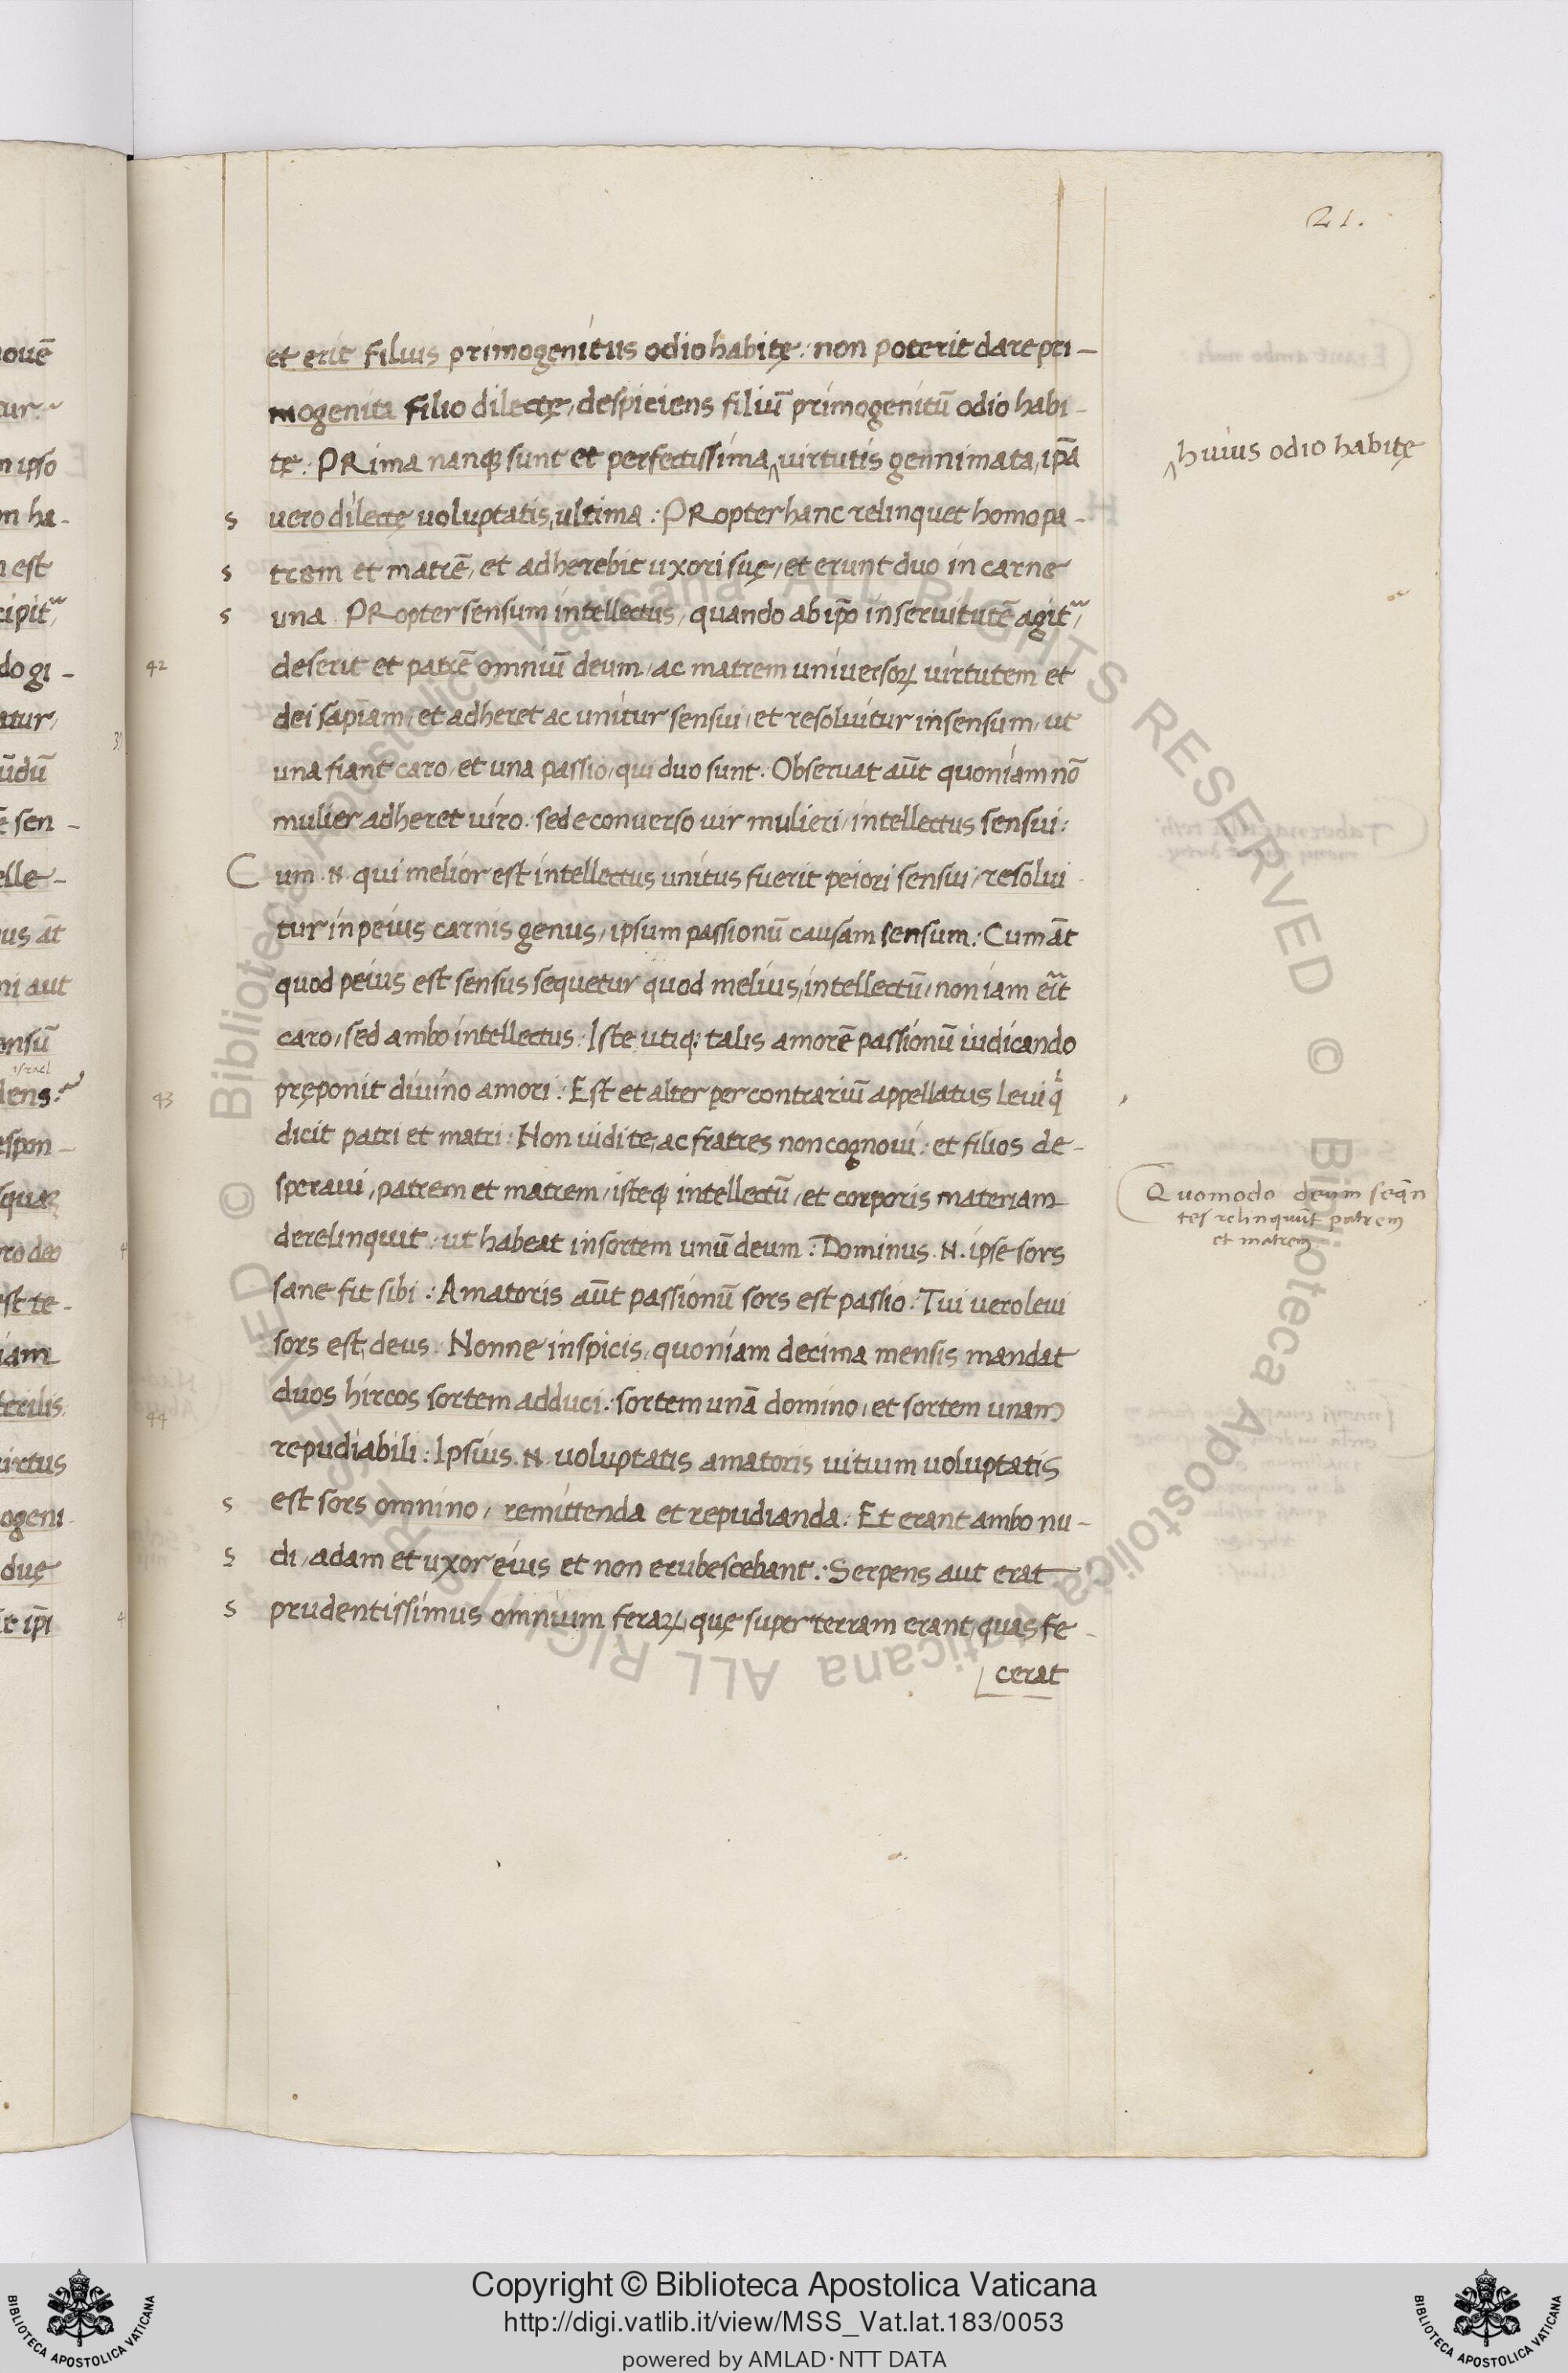 21.
et erit filius primogenitus odio habitę: non poterit dare pri-
mogenita filio dilectę, despiciens filiū primogenitū odio habi-
tę: PRima nanq; sunt et perfectissima, virtutis gennimata, ip̄a
huius odio habitę
s uero dilectę uoluptatis, ultima: PRopter hanc relinquet homo pa-
s trem et matrē, et adherebit uxori suę, et erunt duo in carne
s una. PRopter sensum intellectus, quando ab ip̄o in seruitutē agit~,
42 deserit et patrē omniū deum, ac matrem uniuersoꝝ uirtutem et
dei sap̄iam, et adheret ac unitur sensui, et resoluitur in sensum, ut
una fiant caro, et una passio, qui duo sunt. Obseruat aūt quoniam nō
mulier adheret uiro: sed e conuerso uir mulieri, intellectus sensui:
Cum .N. qui melior est intellectus unitus fuerit peiori sensui, resolui-
tur in peius carnis genus, ipsum passionū causam sensum: Cum āt
quod peius est sensus sequetur quod melius, intellectū, non iam er̃it
caro, sed ambo intellectus: Iste utiq: talis amorē passionū iudicando
43 pręponit diuino amori: Est et alter per contrariū appellatus Leui q̇
dicit patri et matri: Non uidi te, ac fratres non cognoui: et filios de-
speraui, patrem et matrem, isteq; intellectū, et corporis materiam
Quomodo deum seq̄n
tes relinquūt patrem
et matrem
derelinquit: ut habeat in sortem unū deum: Dominus .N. ipse sors
sane fit sibi: Amatoris aūt passionū sors est passio: Tui uero leui
sors est, deus: Nonne inspicis, quoniam decima mensis mandat
44 duos hircos sortem adduci: sortem unā domino, et sortem unam
repudiabili: Ipsius .N. uoluptatis amatoris uitium uoluptatis
s est sors omnino, remittenda et repudianda: Et erant ambo nu-
s di, adam et uxor eius et non erubescebant: Serpens aut erat
s prudentissimus omnium feraꝝ, quę super terram erant, quas fe-
cerat
ouē
tur~
n ipso
m ha-
n est
cipit~,
do gi-
atur,
ūdū
sen-
elle-
us āt
ni aut
ensū
israel
dens:
espon-
squaꝝ
ro deo
est te-
iam
terilis:
irtus
ogeni-
duę
t ip̄i
© Biblioteca Apostolica Vaticana ALL RIGHTS RESERVED © Biblioteca Apostolica Vaticana ALL RIGHTS RESERVED
Copyright © Biblioteca Apostolica Vaticana
http://digi.vatlib.it/view/MSS_Vat.lat.183/0053
powered by AMLAD·NTT DATA
BIBLIOTECA APOSTOLICA VATICANA
BIBLIOTECA APOSTOLICA VATICANA